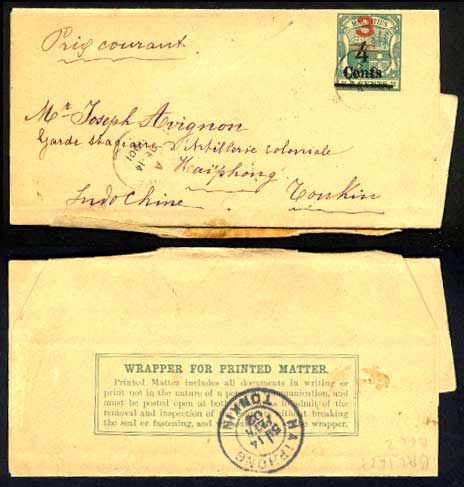 Prix courant
MAURITIUS
3
4
Cents
Mr Joseph Avignon
Garde stagiaire d'Artillerie coloniale
Haïphong
Indo Chine Tonkin
A
DE 14
1901
WRAPPER FOR PRINTED MATTER.
Printed Matter includes all documents in writing or
print not in the nature of a personal communication, and
must be posted open at both to admit of the
removal and inspection of the without breaking
the seal or fastening, and the wrapper.
HAIPHONG
14
TONKIN